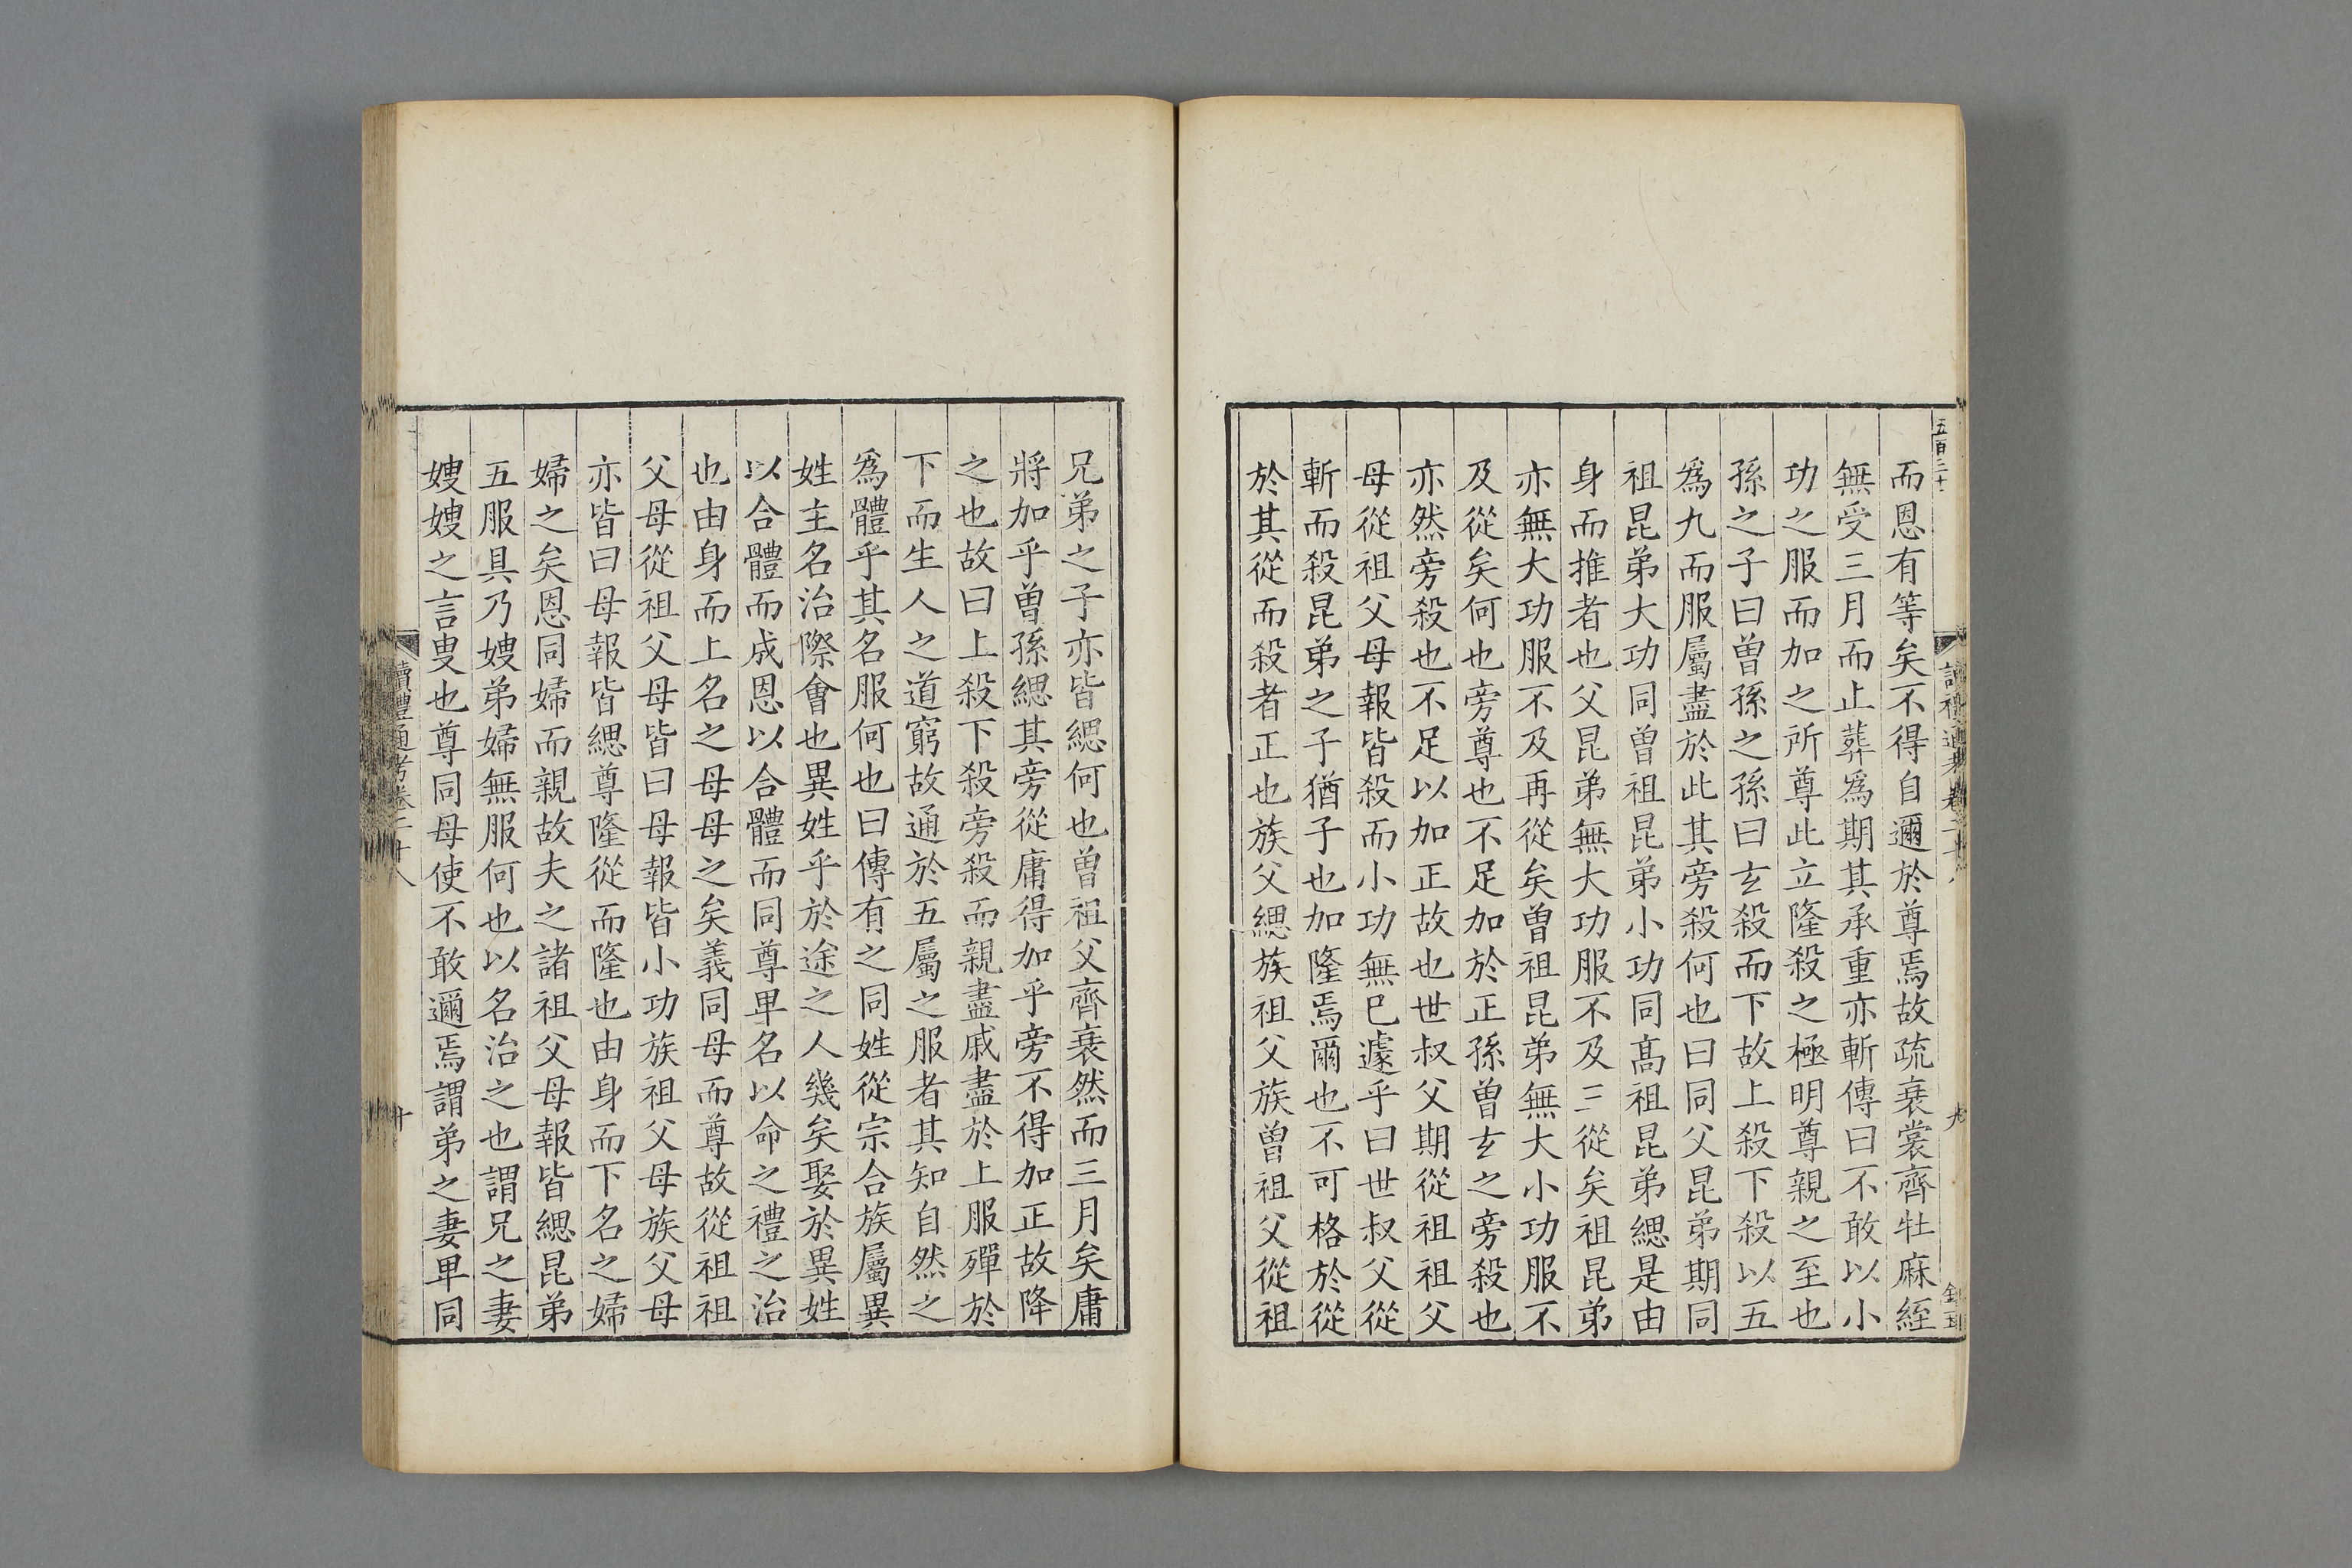 五百二十
而恩有等矣不得自邇於尊焉故疏衰裳齊牡麻絰
無受三月而止葬爲期其承重亦斬傳曰不敢以小
功之服而加之所尊此立隆殺之極明尊親之至也
孫之子曰曾孫之孫曰玄殺而下故上殺下殺以五
爲九而服屬盡於此其旁殺何也曰同父昆弟期同
祖昆弟大功同曾祖昆弟小功同高祖昆弟緦是由
身而推者也父昆弟無大功服不及三從矣祖昆弟
亦無大功服不及再從矣曾祖昆弟無大小功服不
及從矣何也旁尊也不足加於正孫曾玄之旁殺也
亦然旁殺也不足以加正故也世叔父期從祖祖父
母從祖父母報皆殺而小功無已遽乎曰世叔父從
斬而殺昆弟之子猶子也加隆焉爾也不可格於從
於其從而殺者正也族父緦族祖父族曾祖父從祖
兄弟之子亦皆緦何也曾祖父齊衰然而三月矣庸
將加乎曾孫緦其旁從庸得加乎旁不得加正故降
之也故曰上殺下殺旁殺而親盡戚盡於上服殫於
下而生人之道窮故通於五屬之服者其知自然之
爲體乎其名服何也曰傳有之同姓從宗合族屬異
姓主名治際會也異姓乎於途之人幾矣娶於異姓
以合體而成恩以合體而同尊卑名以命之禮之治
也由身而上名之母母之矣義同母而尊故從祖祖
父母從祖父母皆曰母報皆小功族祖父母族父母
亦皆曰母報皆緦尊隆從而隆也由身而下名之婦
婦之矣恩同婦而親故夫之諸祖父母報皆緦昆弟
五服具乃嫂弟婦無服何也以名治之也謂兄之妻
嫂嫂之言叟也尊同母使不敢邇焉謂弟之妻卑同
讀禮通考卷二十八
廿